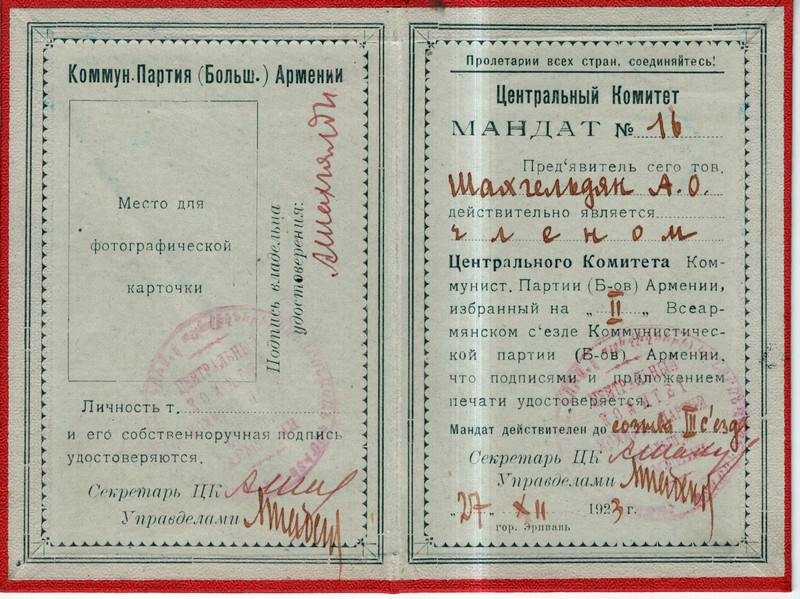 Коммун. Партия (Больш.) Армении
Место для
фотографической
карточки
Подпись владельца
удостоверения:
Личность т.
и его собственноручная подпись
удостоверяются.
Секретарь ЦК
Управделами
Пролетарии всех стран, соединяйтесь!
Центральный Комитет
МАНДАТ № 16
Пред‘явитель сего тов.
Шахгельдян А.О.
действительно является
членом
Центрального Комитета Ком-
мунист. Партии (Б-ов) Армении,
избранный на „ II „ Всеар-
мянском с‘езде Коммунистичес-
кой партии (Б-ов) Армении,
что подписями и приложением
печати удостоверяется.
Мандат действителен до созыва III с‘езда
Секретарь ЦК
Управделами
„27„ XII 1923 г.
гор. Эривань